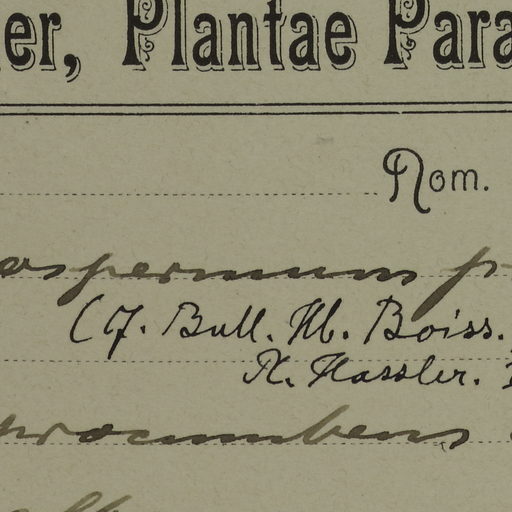 er, Plantae Para
Nom.
ospermum p
(cf. Bull. Hb. Boiss.
Hassler.
procumbens